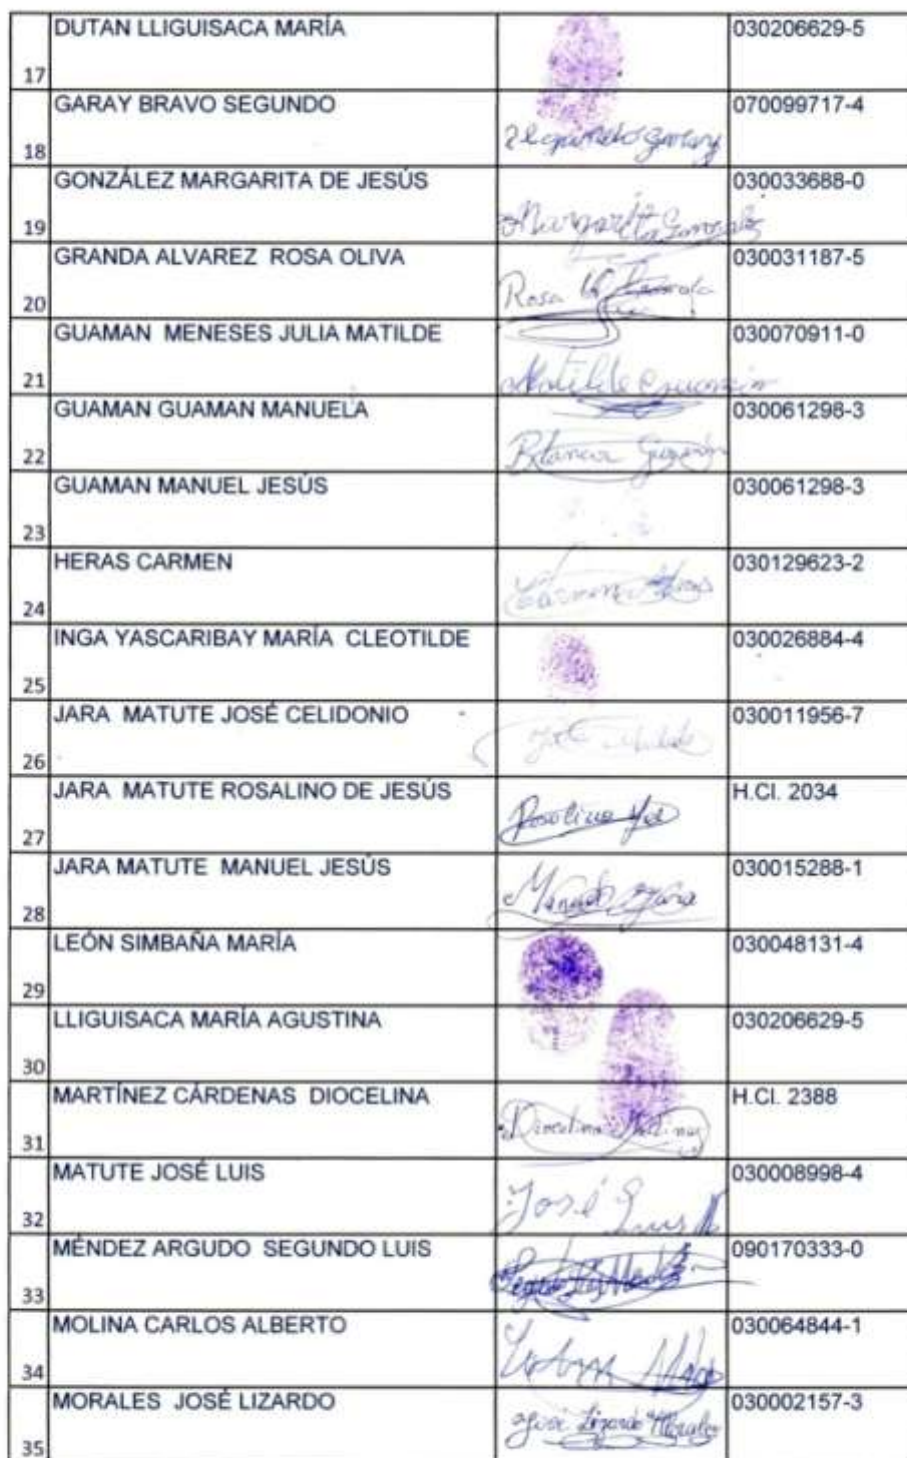 17 DUTAN LLIGUISACA MARÍA 030206629-5
18 GARAY BRAVO SEGUNDO Segundo Garay 070099717-4
19 GONZÁLEZ MARGARITA DE JESÚS Margarita Gonzalez 030033688-0
20 GRANDA ALVAREZ ROSA OLIVA Rosa Granda 030031187-5
21 GUAMAN MENESES JULIA MATILDE Matilde Guaman 030070911-0
22 GUAMAN GUAMAN MANUELA Blanca Guamán 030061298-3
23 GUAMAN MANUEL JESÚS 030061298-3
24 HERAS CARMEN Carmen Heras 030129623-2
25 INGA YASCARIBAY MARÍA CLEOTILDE 030026884-4
26 JARA MATUTE JOSÉ CELIDONIO 030011956-7
27 JARA MATUTE ROSALINO DE JESÚS Rosalino H.Cl. 2034
28 JARA MATUTE MANUEL JESÚS Manuel Jara 030015288-1
29 LEÓN SIMBAÑA MARÍA 030048131-4
30 LLIGUISACA MARÍA AGUSTINA 030206629-5
31 MARTÍNEZ CÁRDENAS DIOCELINA Diocelina Martinez H.Cl. 2388
32 MATUTE JOSÉ LUIS José Luis M 030008998-4
33 MÉNDEZ ARGUDO SEGUNDO LUIS 090170333-0
34 MOLINA CARLOS ALBERTO 030064844-1
35 MORALES JOSÉ LIZARDO José Lizardo Morales 030002157-3